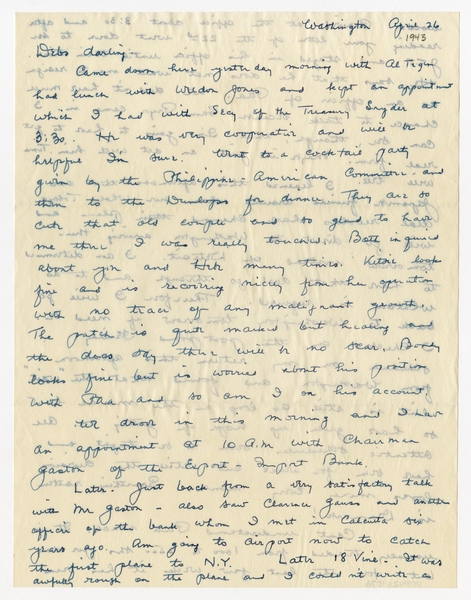 Washington April 26
1943
Debs darling -
Came down here yesterday morning with Al
had lunch with Weldon Jones and kept an appointment
which I had with Secy of the Treasury Snyder at
3:30. He was very cooperative and will be
helpful I'm sure. Went to a cocktail party
given by the Philippine-American Committee and
then to the Dunlops for dinner. They are so
cute that old couple and so glad to have
me there I was really touched. Both inquired
about you and many times. Kitsie looks
fine and is recovering nicely from her operation
with no trace of any malignant growth.
The patch is quite marked but healing and
the docs say there will be no scar. Bobby
"looks" fine but is worried about his position
with Pha and so am I on his account.
We drove in this morning and I have
an appointment at 10 A.M. with Chairman
Gaston of the Export-Import Bank.
Later. Just back from a very satisfactory talk
with Mr. Gaston - also saw Clarence Gauss and another
officer of the bank whom I met in Calcutta six
years ago. Am going to airport now to catch
the first plane to N.Y. Later 18 Vine - It was
awfully rough on the plane and I couldn't write a